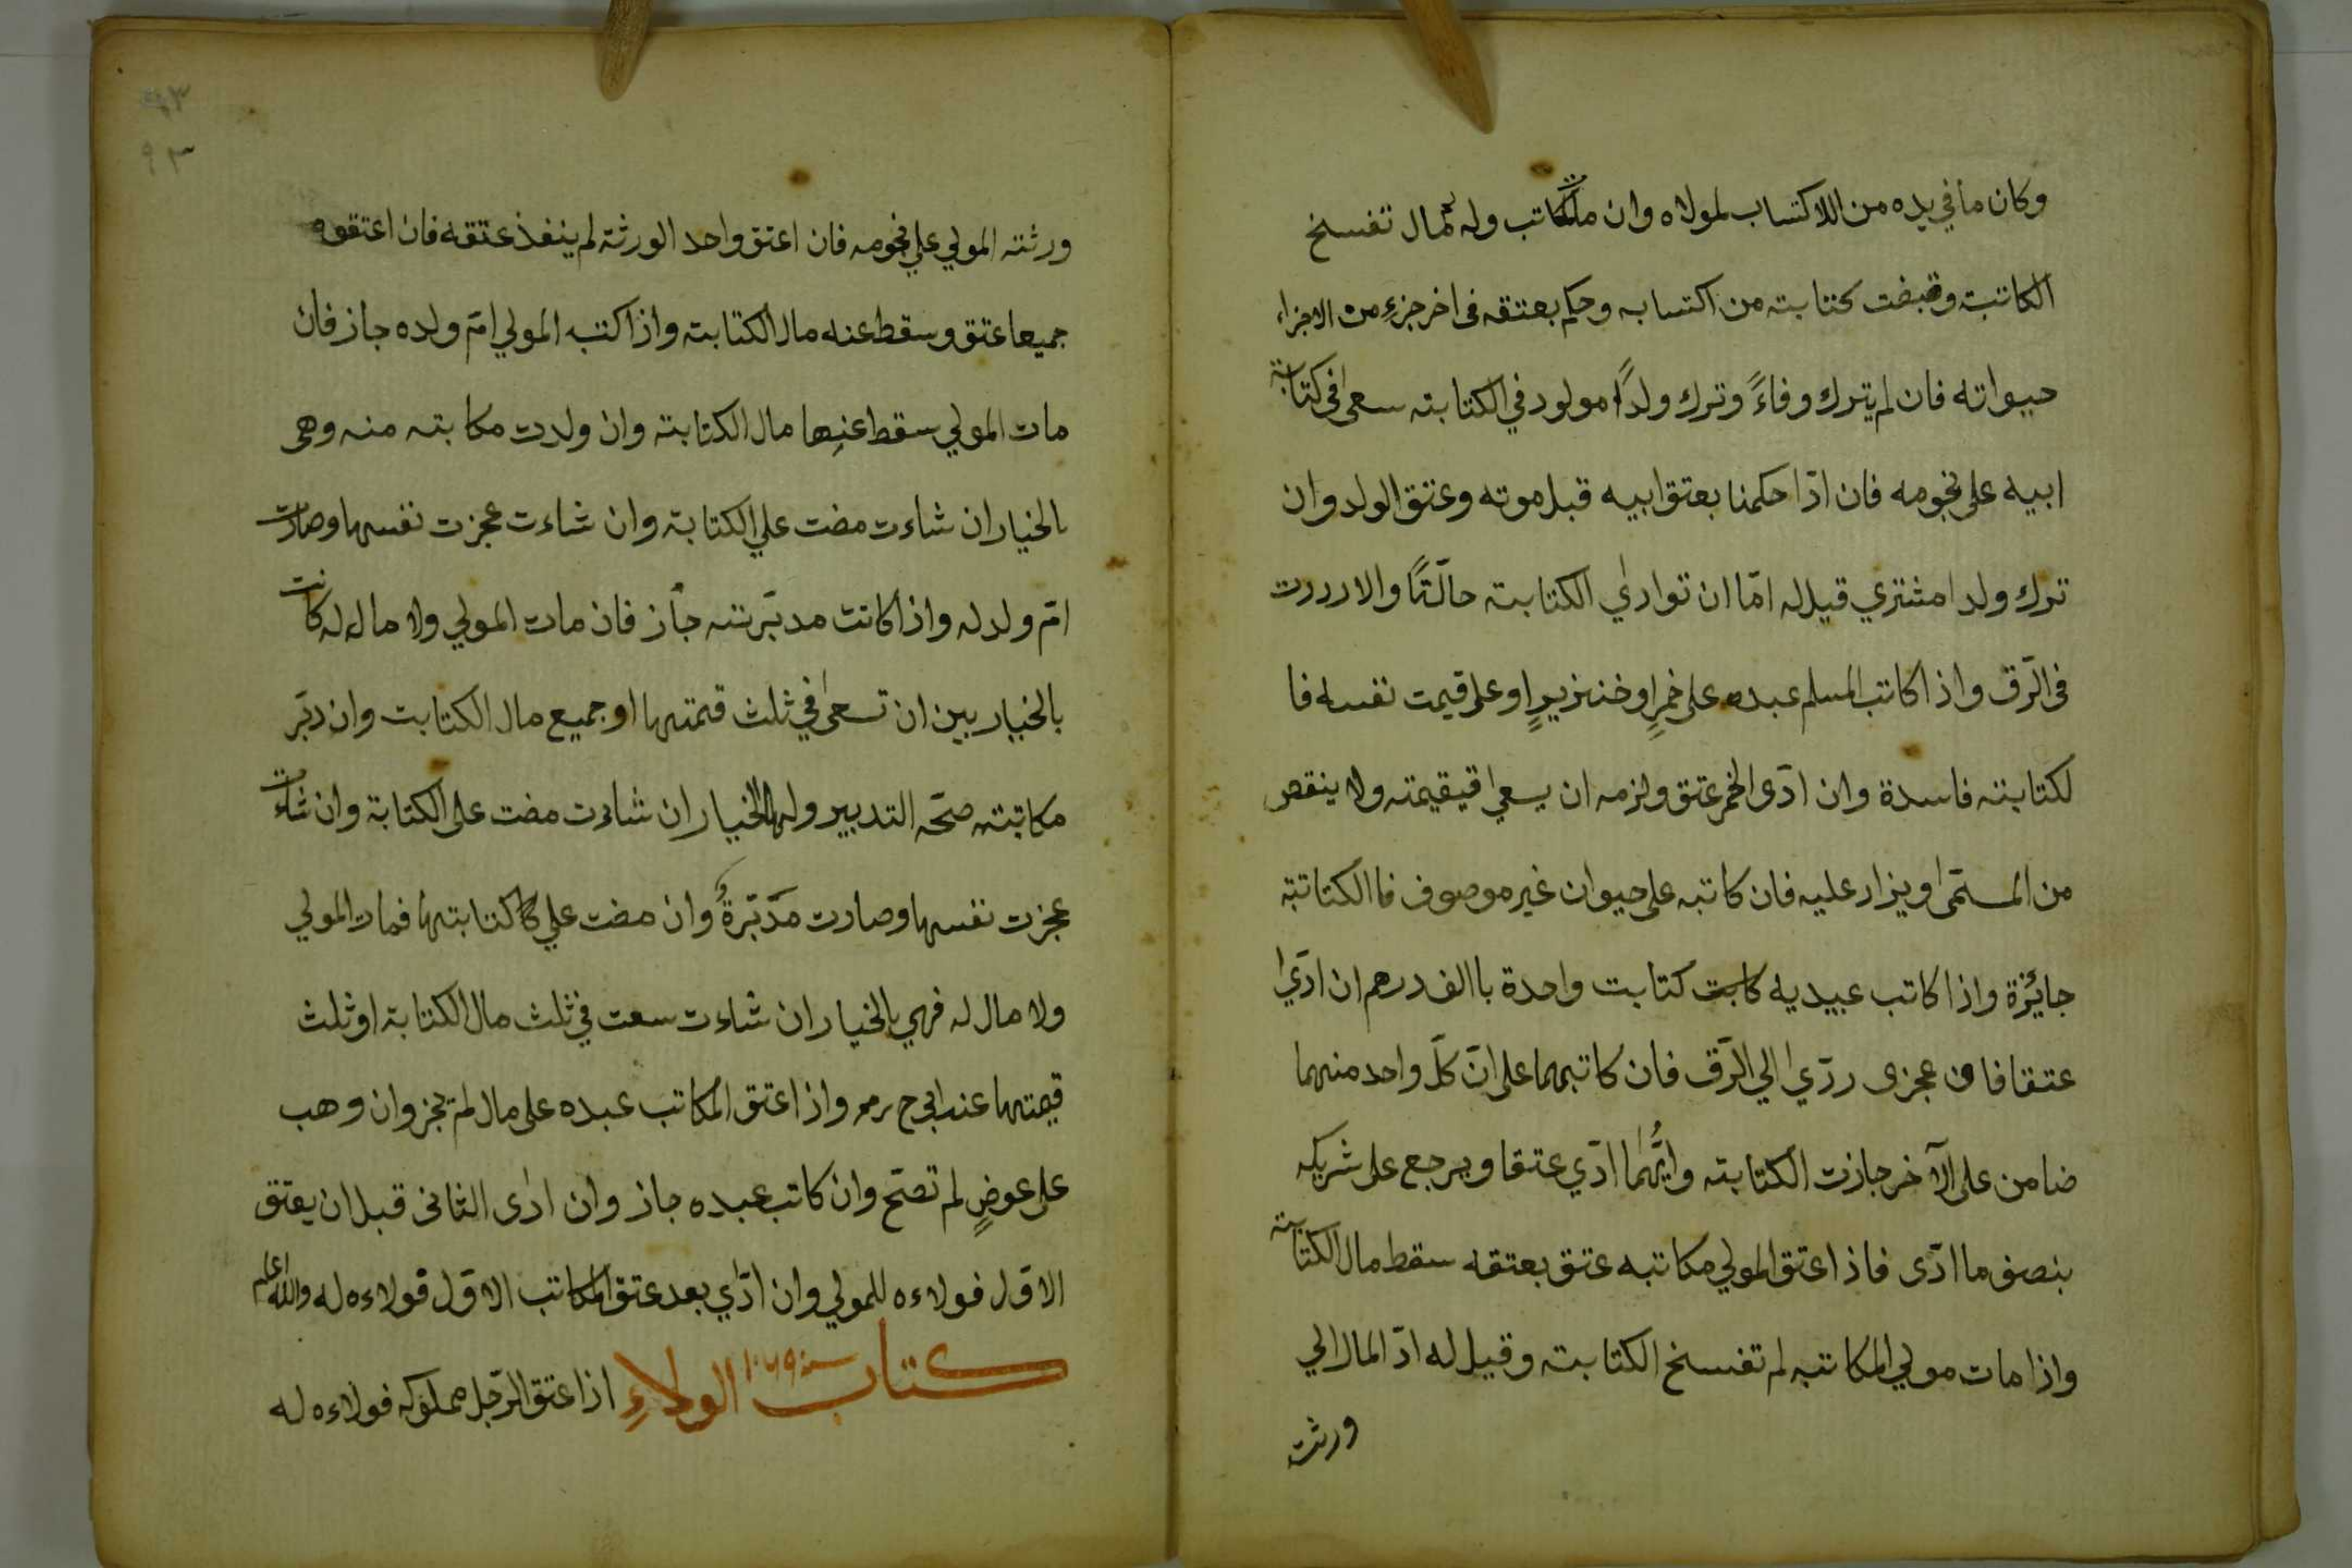 وكان ما في يده من اللاكتساب لمولاه وان مات المكاتب وله مال تفسخ
الكاتبته وقبضت كتابته من اكتسابه وحكم بعتقه فى اخر جزءٍ من الاجزاء
حيواته فان لم يترك وفاءً وترك ولدًا مولود في الكتابته سعى في كتابة
ابيه على نجومه فان ادّا حكمنا بعتق ابيه قبل موته وعتق الولد وان
ترك ولدا مشتري قيل له امّا ان توادي الكتابته حالّتًا والا رددت
فى الرّق واذا كاتب المسلم عبده على خمرٍ او خنزيرٍ او على قيمت نفسه فا
لكتابته فاسدة وان ادّى الخمر عتق ولزمه ان يسعى قيقيمته ولا ينقص
من المسمّى او يزار عليه فان كاتبه على حيوان غير موصوف فا الكتاتبته
جائزة واذا كاتب عبيديه كابت كتابت واحدة باالف درهم ان ادّيا
عتقا فان عجزى ردّيا الي الرّق فان كاتبهما على انّ كلّ واحد منهما
ضامن على الآخر جازت الكتابته وايُّهما ادّي عتقا ويرجع على شريكه
بنصف ما ادّى فاذا اعتق المولي مكاتبه عتق بعتقه سقط مال الكتابته
واذا مات مولي المكاتبه لم تفسخ الكتابته وقيل له ادّ المال الي
ورثته
٩٣
٩٣
ورثته المولي على نجومه فان اعتق واحد الورثته لم ينفذ عتقه فان اعتقوه
جميعا عتق وسقط عنه مال الكتابته واذا كتب المولي امّ ولده جاز فان
مات المولي سقط عنها مال الكتابته وان ولدت مكابته منه وهى
بالخيار ان شاءت مضت علي الكتابة وان شاءت عجزت نفسها وصارت
امّ ولد له واذا كانت مدبّرتنه جاز فان مات المولي ولا مال له كانت
بالخيار بين ان تسعى في ثلث قمتها او جميع مال الكتابت وان دبّر
مكاتبته صحّه التدبير ولها الخيار ان شاءت مضت على الكتابة وان شاءت
عجزت نفسها وصارت مدبّرةً وان مضت علي كتابتها فمات المولي
ولا مال له فهي بالخيار ان شاءت سعت في ثلث مال الكتابة او ثلث
قيمتها عند ابى ح رحمه واذا اعتق المكاتب عبده على مال لم يجز وان وهب
على عوضٍ لم تصحّ وان كاتب عبده جاز وان ادى الثانى قبل ان يعتق
الاوّل فولاءه للمولي وان ادّي بعد عتق المكاتب الاوّل فولاءه له والله اعلم
كتاب الولاءِ اذا عتق الرّجل مملوكه فولاءه له